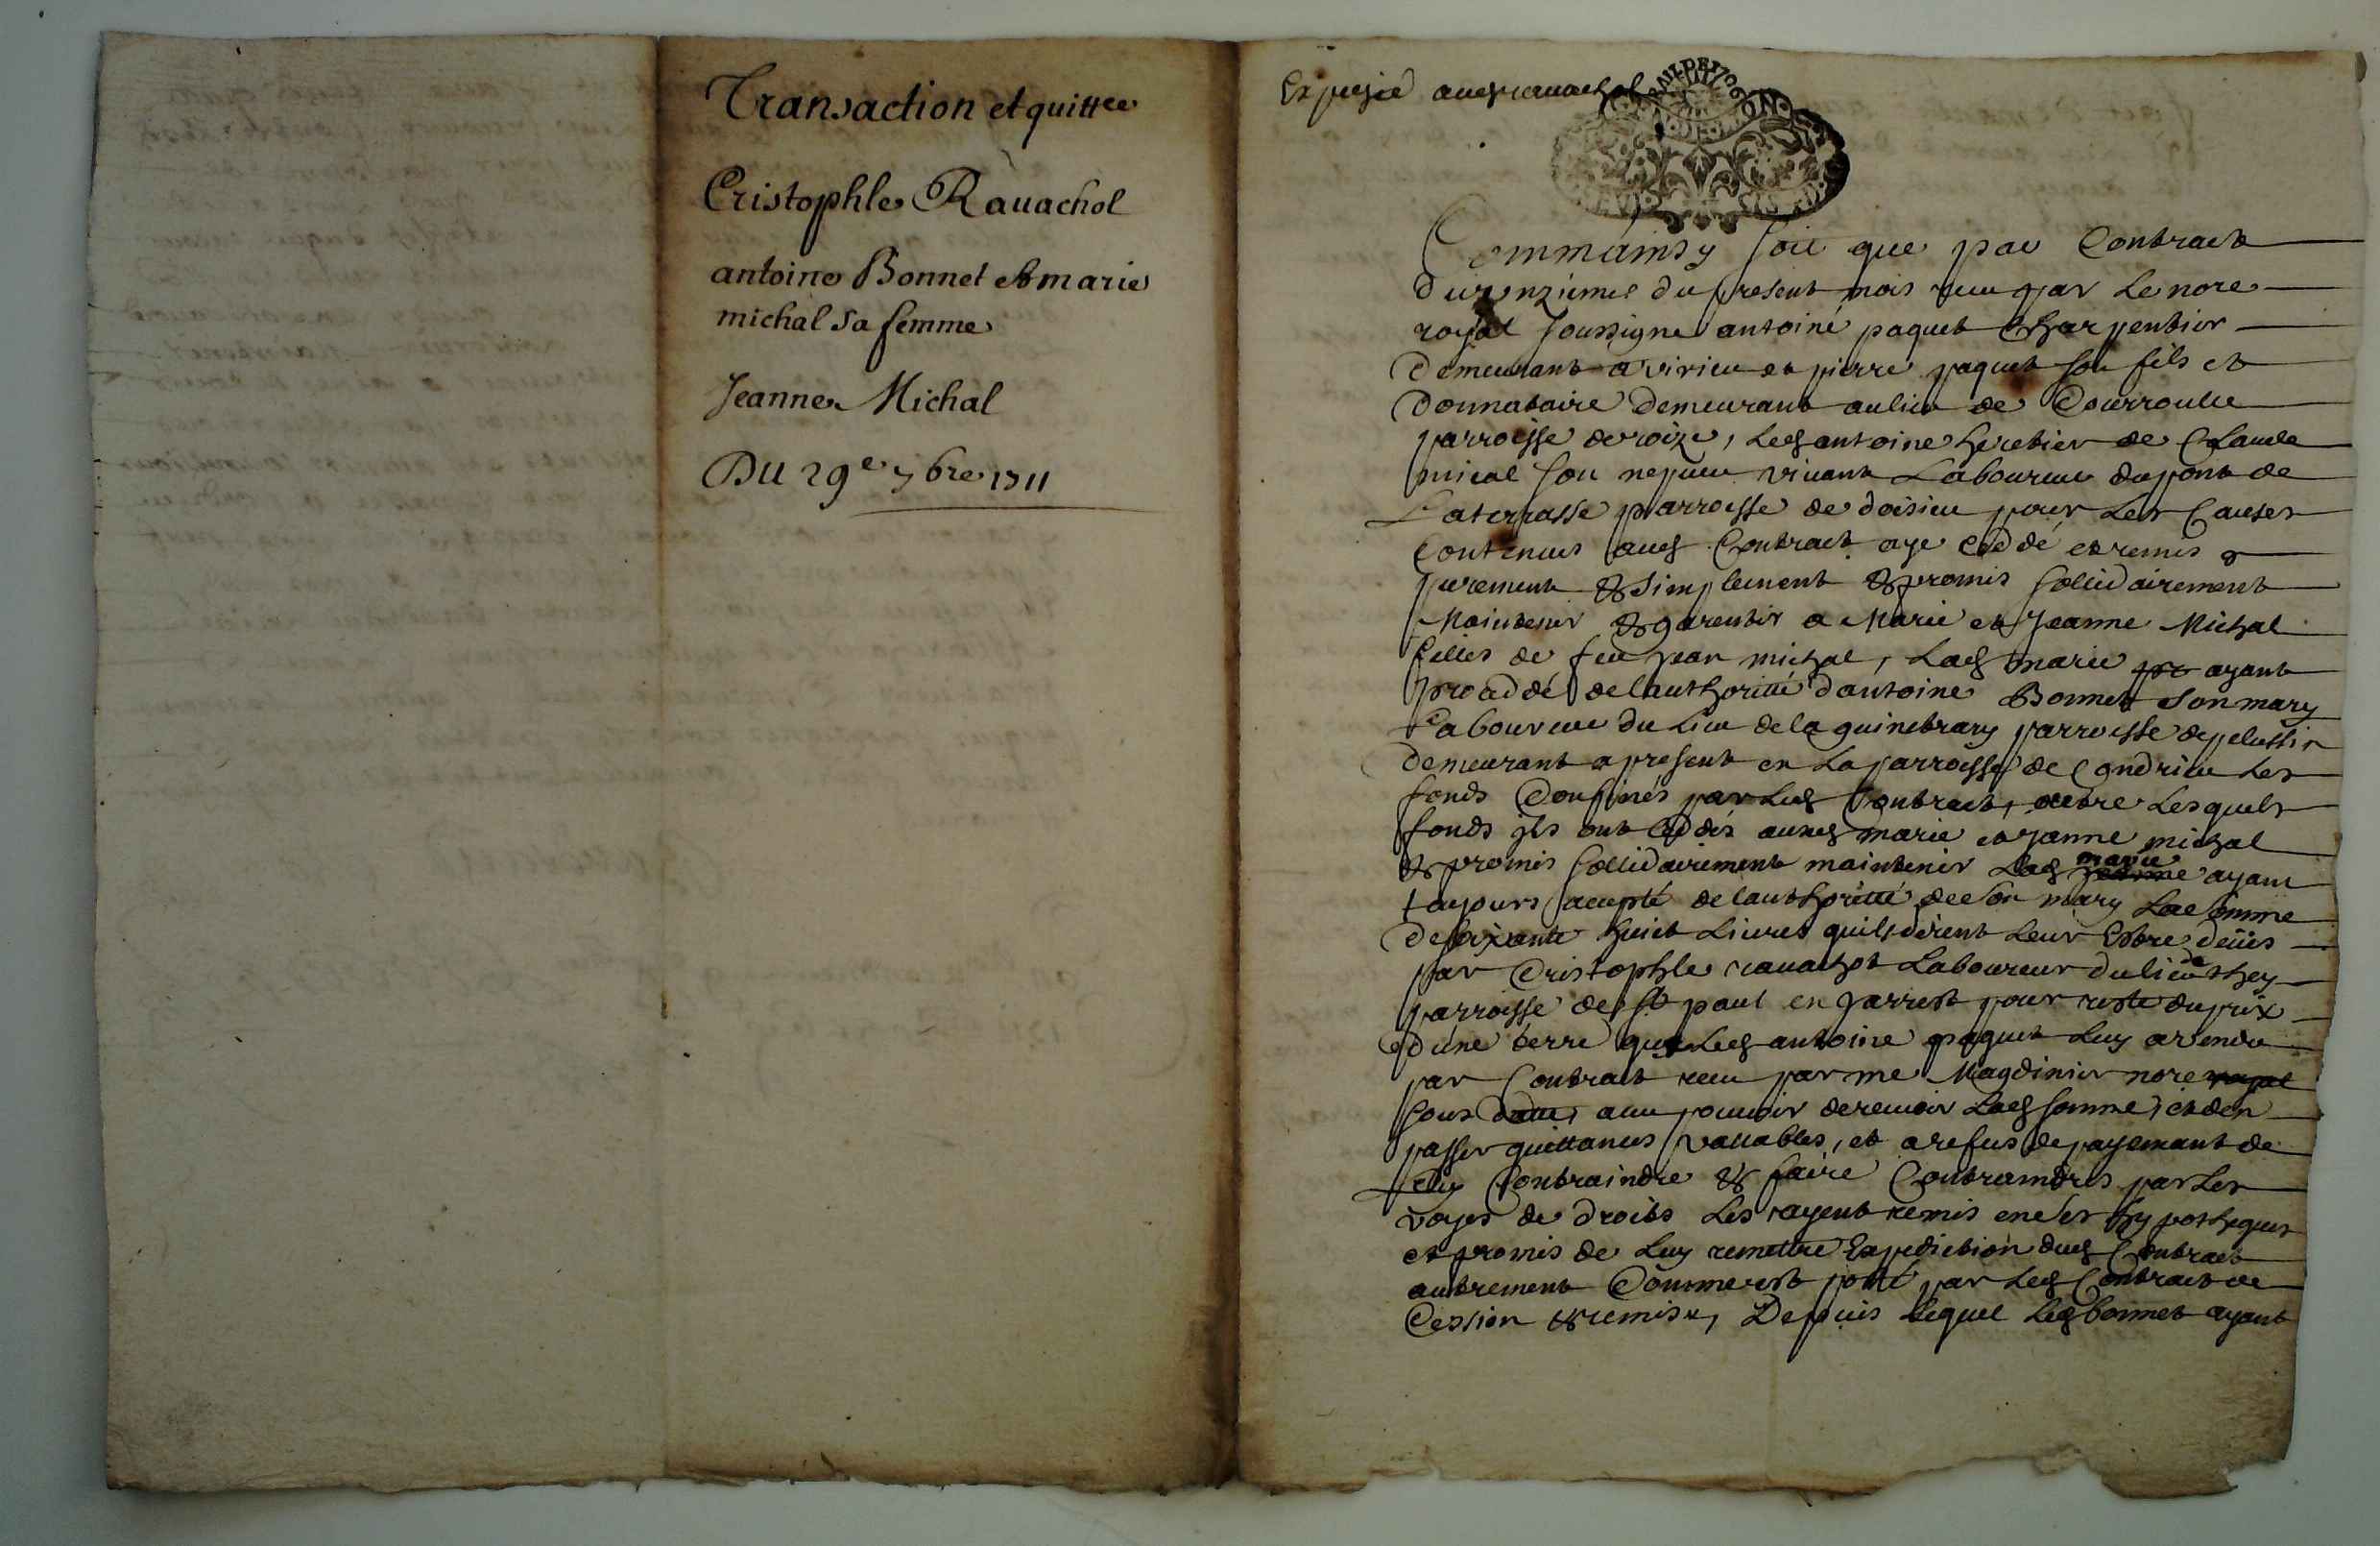 Transaction et quittce
Cristophle Rauachol
antoine Bonnet et marie
michal sa femme
Jeanne Michal
Du 29e 7bre 1711
Expesié audt rauachol
BAIL DE 1706
Comm ainsy soit que par Contract
du onzieme du present mois receu par Le nore
royal soussigne antoine paquet Charpentier
demeurant a virieu et pierre paquet son fils et
donnataire demeurant au lieu de
parroisse de roize, Ledt antoine heretier de Claude
mical son nepueu viuant Laboureur du pont de
La terrasse parroisse de doisieu pour Les Causes
Contenues audt Contract aye ceddé et remis
purement & simplement & promis sollidairement
Maintenir & garentir a Marie et Jeanne Michal
filles de feu jean michal, Ladt marie ayant
proceddé de lauthoritté dantoine Bonnet son mary
Laboureur du Lieu de la guinebrary parroisse de pelussin
demeurant a present en La parroisse de Condrieu Les
fonds Confinés par Ledt Contract, outre Lesquels
fonds ils ont Ceddés ausdt marie et janne michal
& promis sollidairement maintenir Ladt marie ayant
toujours accepté de lauthoritté de son mary La somme
de soixante huict Liures quils dirent Leur Estre deües
par Cristophle rauachol Laboureur du lieu de they
parroisse de st paul en jarrest pour reste du prix
dune terre que Ledt antoine paquet Luy a vendu
par Contract receu par me Magdinier nore royal
sous datte, auec pouuoir de receuoir Ladt somme, et den
passer quittances vallables, et a refus de payemant de
Luy Contraindre & faire Contraindres par Les
voyes de droits Les ayent remis en Les hypotheques
et promis de Luy remettre Expediction dudt Contract
autrement Comme est porté par Ledt Contract de
Cession & remise, Depuis Lequel Ledt bonnet ayant